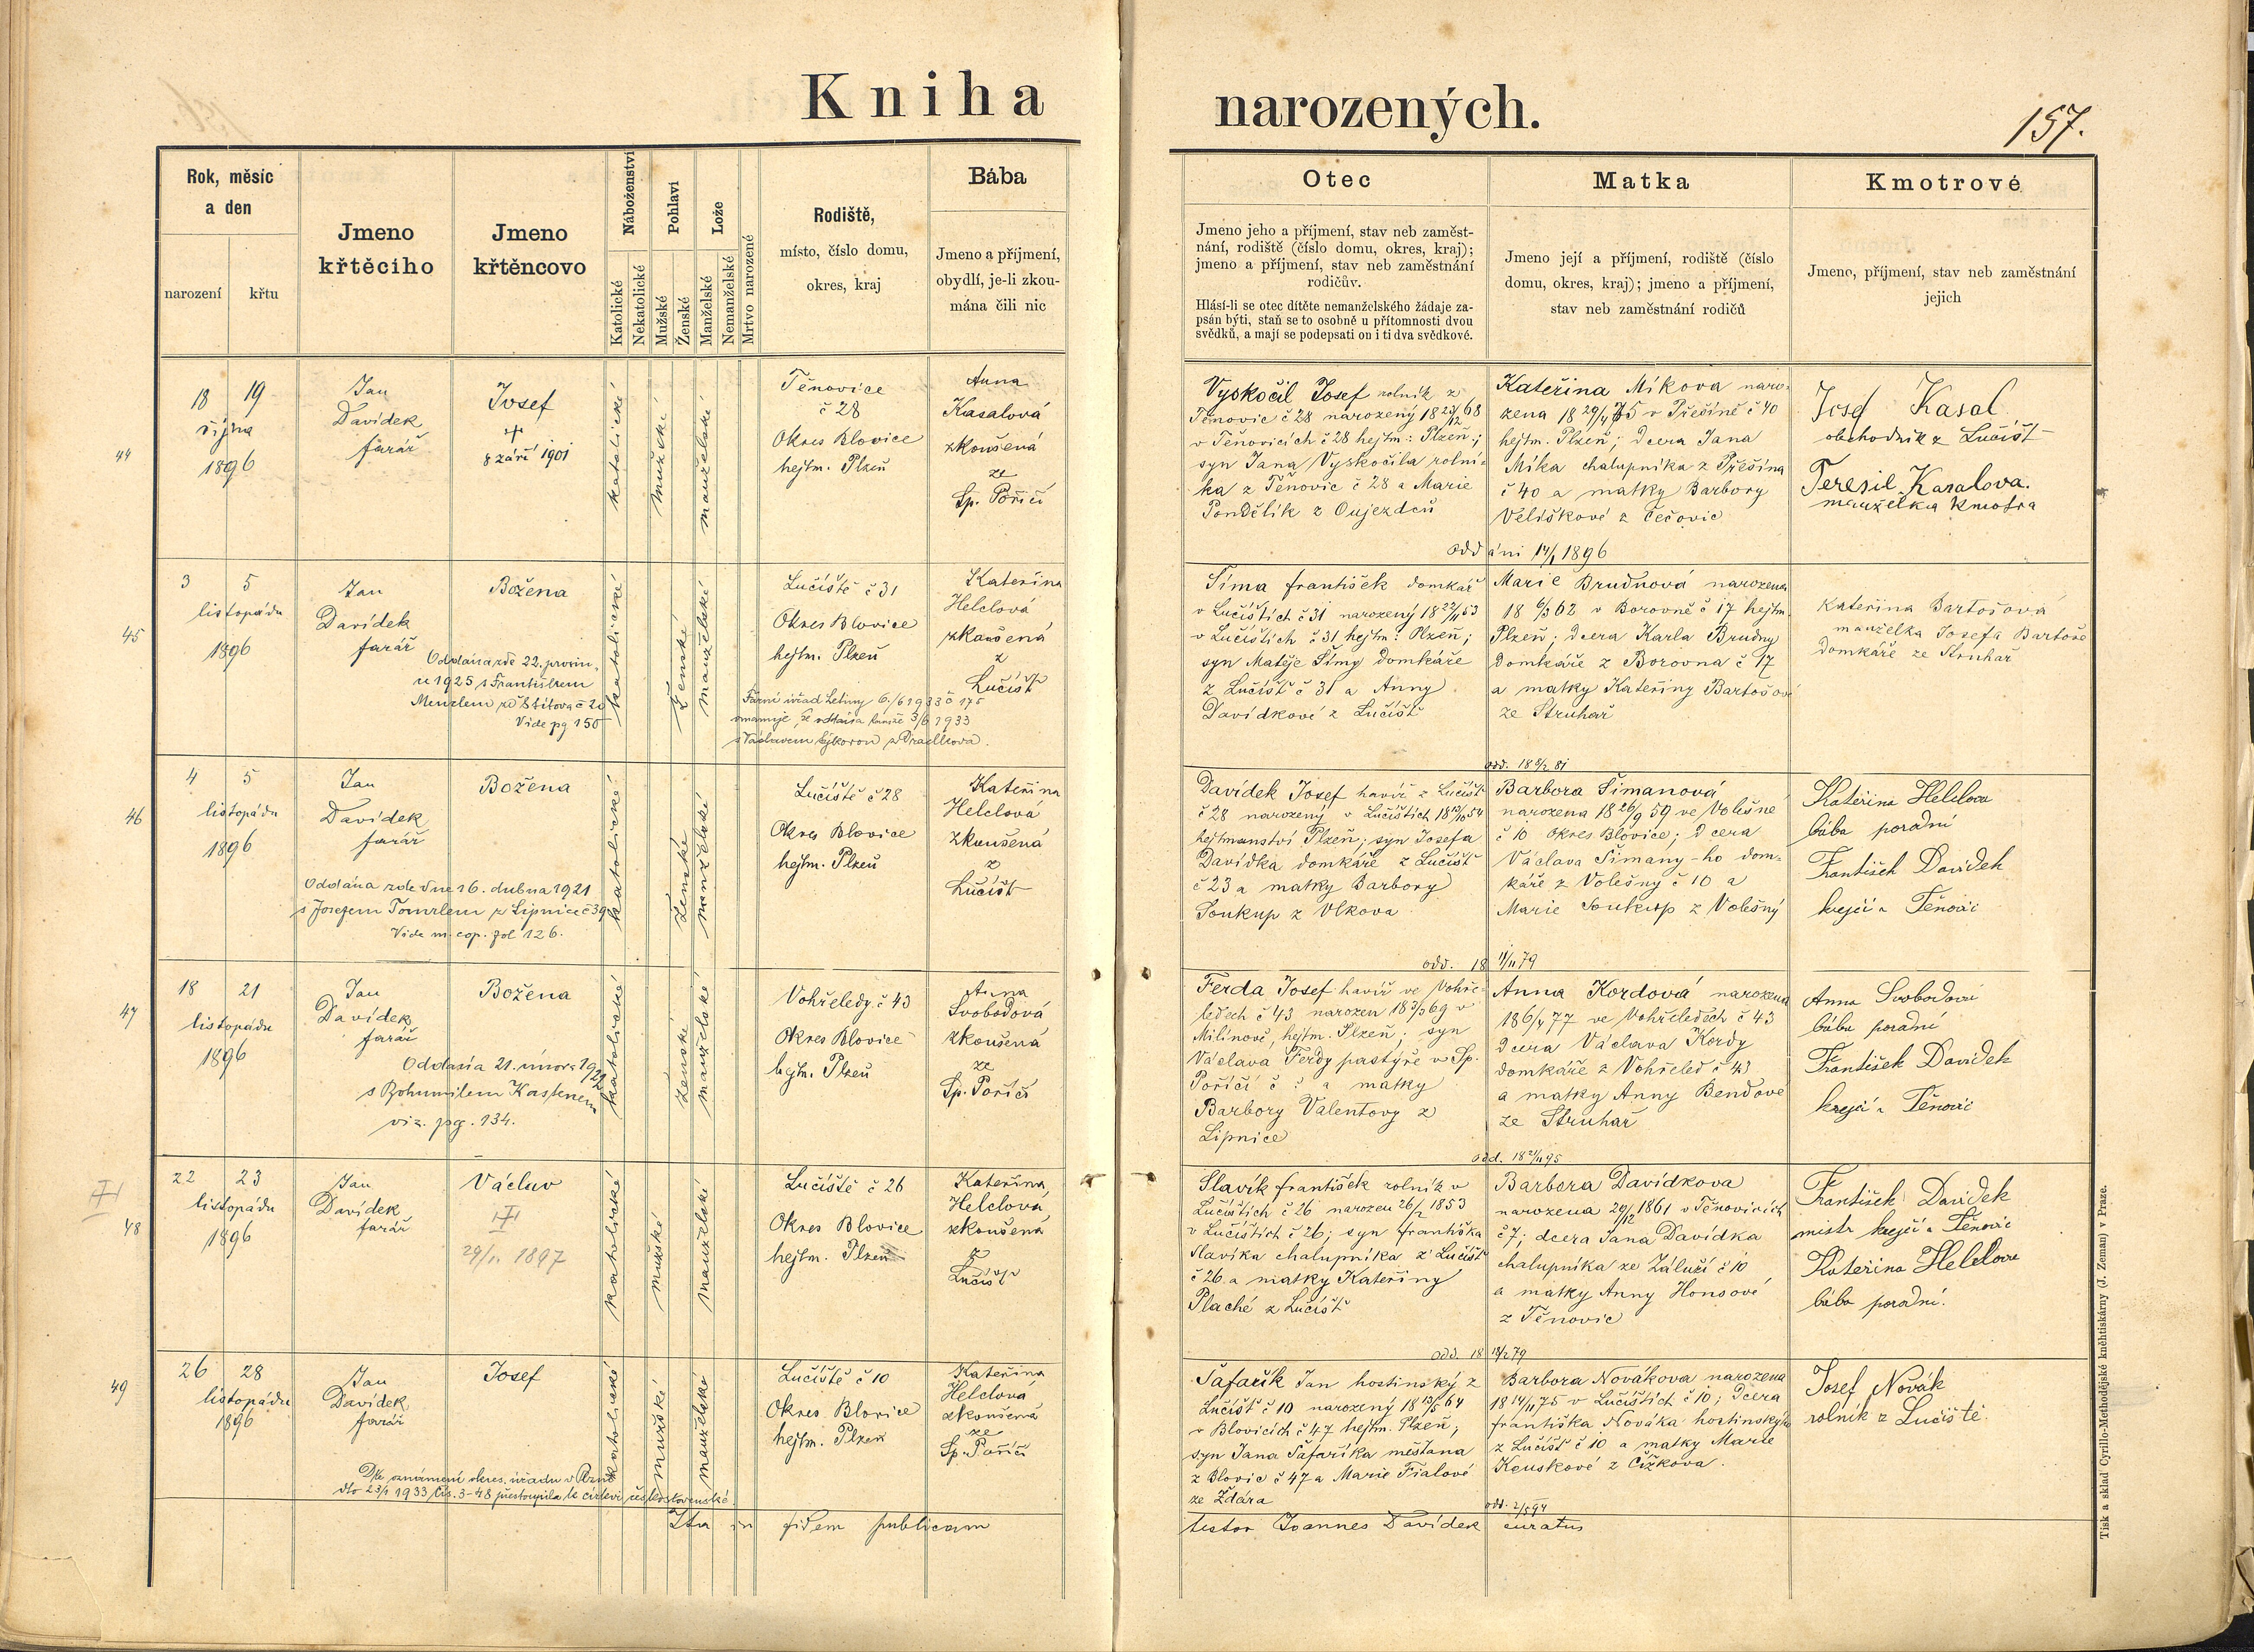 Kniha narozených.
157.
Rok, měsíc
a den
narození
křtu
Jmeno
křtěcího
Jmeno
křtěncovo
Náboženství
Katolické
Nekatolické
Pohlaví
Mužské
Ženské
Lože
Manželské
Nemanželské
Mrtvo narozené
Rodiště,
místo, číslo domu,
okres, kraj
Bába
Jmeno a příjmení,
obydlí, je-li zkou-
mána čili nic
Otec
Jmeno jeho a příjmení, stav neb zaměst-
nání, rodiště (číslo domu, okres, kraj);
jmeno a příjmení, stav neb zaměstnání
rodičův.
Hlásí-li se otec dítěte nemanželského žádaje za-
psán býti, staň se to osobně u přítomnosti dvou
svědků, a mají se podepsati on i ti dva svědkové.
Matka
Jmeno její a příjmení, rodiště (číslo
domu, okres, kraj); jmeno a příjmení,
stav neb zaměstnání rodičů
Kmotrové
Jmeno, příjmení, stav neb zaměstnání
jejich
44
18 19
října
1896
Jan
Davídek
farář
Josef
+
8 září 1901
katolické
mužské
manželské
Těnovice
č 28
Okres Blovice
hejtm. Plzeň
Anna
Kasalová
zkoušená
ze
Sp. Poříčí
Vyskočil Josef rolník z
Těnovic č 28 narozený 18 23/12 68
v Těnovicích č 28 hejtm: Plzeň;
syn Jana Vyskočila rolní-
ka z Těnovic č 28 a Marie
Pondělík z Oujezdců
Kateřina Míkova naro-
zena 18 29/4 75 v Přešíně č 40
hejtm. Plzeň; dcera Jana
Míka chalupníka z Přešína
č 40 a matky Barbory
Velíškové z Čečovic
oddáni 14/1 1896
Josef Kasal
obchodník z Lučišť
Teresie Kasalova.
manželka kmotra
45
3 5
listopádu
1896
Jan
Davídek
farář
Božena
Oddána zde 22. prosin.
r. 1925 s Františkem
Menzlem ze Štítova č 20
Vide pg 150
katolické
Ženské
manželské
Lučiště č 31
Okres Blovice
hejtm. Plzeň
Kateřina
Helclová
zkoušená
z
Lučišť
Farní úřad Letiny 6./6 1933 č 175
s Václavem Sýkorou z Dradkova.
Šíma František domkář
v Lučištích č 31 narozený 18 22/11 53
v Lučištích č 31 hejtm: Plzeň;
syn Matěje Šímy domkáře
z Lučišť č 31 a Anny
Davídkové z Lučišť
Marie Brudnová narozena
18 6/3 62 v Borovně č 17 hejtm.
Plzeň; dcera Karla Brudny
domkáře z Borovna č 17
a matky Kateřiny Bartošové
ze Struhař
odd. 18 8/2 81
Kateřina Bartošová
manželka Josefa Bartoše
domkáře ze Struhař
46
4 5
listopádu
1896
Jan
Davídek
farář
Božena
Oddána zde dne 16. dubna 1921
s Josefem Tomrlem z Lipnice č 39
Vide m. cop. fol 126.
katolické
Ženské
manželské
Lučiště č 28
Okres Blovice
hejtm. Plzeň
Kateřina
Helclová
zkoušená
z
Lučišť
Davídek Josef havíř z Lučišť
č 28 narozený v Lučištích 18 13/10 54
hejtmanství Plzeň; syn Josefa
Davídka domkáře z Lučišť
č 23 a matky Barbory
Soukup z Vlkova
Barbora Šimanová
narozena 18 26/9 59 ve Volešné
č 10 okres Blovice; dcera
Václava Šimany-ho dom-
káře z Volešny č 10 a
Marie Soukup z Volešný
odd. 18 11/11 79
Kateřina Helclova
bába poradní
František Davídek
krejčí z Těnovic
47
18 21
listopádu
1896
Jan
Davídek
farář
Božena
Oddána 21. února 1922
s Bohumilem Kastenem
viz. pg. 134.
katolické
Ženské
manželské
Vohřeledy č 43
Okres Blovice
hejtm. Plzeň
Anna
Svobodová
zkoušená
ze
Sp. Poříčí
Ferda Josef havíř ve Vohře-
ledech č 43 narozen 18 3/3 69 v
Milínově, hejtm. Plzeň; syn
Václava Ferdy pastýře v Sp.
Poříčí č : a matky
Barbory Valentovy z
Lipnice
Anna Kordová narozena
18 6/4 77 ve Vohřeledech č 43
dcera Václava Kordy
domkáře z Vohřeled č 43
a matky Anny Bendove
ze Struhař
odd. 18 21/11 95
Anna Svobodová
bába poradní
František Davídek
krejčí z Těnovic
48
22 23
listopádu
1896
Jan
Davídek
farář
Václav
29/1. 1897
katolické
mužské
manželské
Lučiště č 26
Okres Blovice
hejtm. Plzeň
Kateřina
Helclová
zkoušená
z
Lučišť
Slavík František rolník v
Lučištích č 26 narozen 26/2 1853
v Lučištích č 26; syn Františka
Slavíka chalupníka z Lučišť
č 26 a matky Kateřiny
Plaché z Lučišť
Barbora Davídkova
narozena 29/12 1861 v Těnovicích
č 7; dcera Jana Davídka
chalupníka ze Záluží č 10
a matky Anny Honsové
z Těnovic
odd. 18 18/2 79
František Davídek
mistr krejčí z Těnovic
Kateřina Helclova
bába poradní.
49
26 28
listopádu
1896
Jan
Davídek
farář
Josef
Dle oznámení okres. úřadu v Plzni
dto 23/1 1933 čís. 3-48 přestoupila k církvi československé.
katolické
mužské
manželské
Lučiště č 10
Okres Blovice
hejtm. Plzeň
Kateřina
Helclová
zkoušená
ze
Sp. Poříčí
Šafařík Jan hostinský z
Lučišť č 10 narozený 18 13/5 64
v Blovicích č 47 hejtm. Plzeň;
syn Jana Šafaříka měšťana
z Blovic č 47 a Marie Fialové
ze Ždára
Barbora Novákova narozena
18 14/11 75 v Lučištích č 10; dcera
Františka Nováka hostinského
z Lučišť č 10 a matky Marie
Kouskové z Čížkova.
odd. 2/5 94
Josef Novák
rolník z Lučiště.
Ita in fidem publicam
testor Joannes Davídek curatus
Tisk a sklad Cyrillo-Methodějské knihtiskárny (J. Zeman) v Praze.